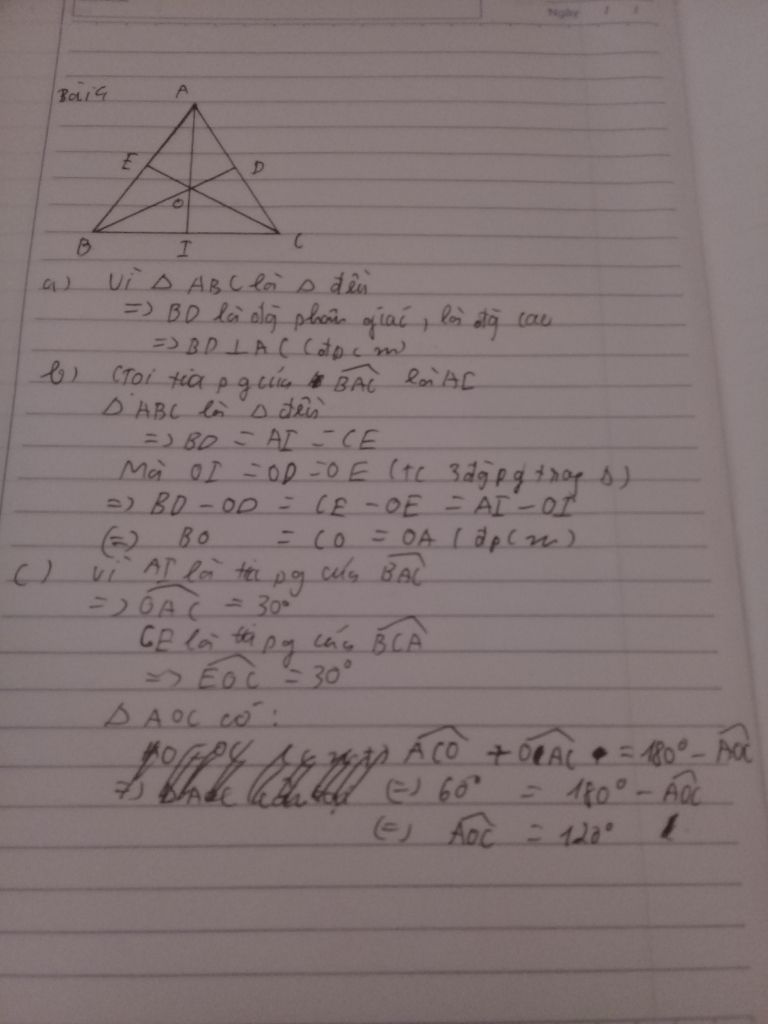 Ngày / /
Bài 4
A
E
D
O
B
I
C
a) Vì Δ ABC là Δ đều
=> BD là đg phân giác, là đg cao
=> BD ⊥ AC (đpcm)
b) Gọi tia pg của BAC là AI
Δ ABC là Δ đều
=> BD = AI = CE
Mà OI = OD = OE (tc 3 đg pg trong Δ)
=> BD - OD = CE - OE = AI - OI
(=) BO = CO = OA (đpcm)
c) Vì AI là tia pg của BAC
=> OAC = 30°
CE là tia pg của BCA
=> EOC = 30°
Δ AOC có:
ACO + OAC = 180° - AOC
(=) 60° = 180° - AOC
(=) AOC = 120°